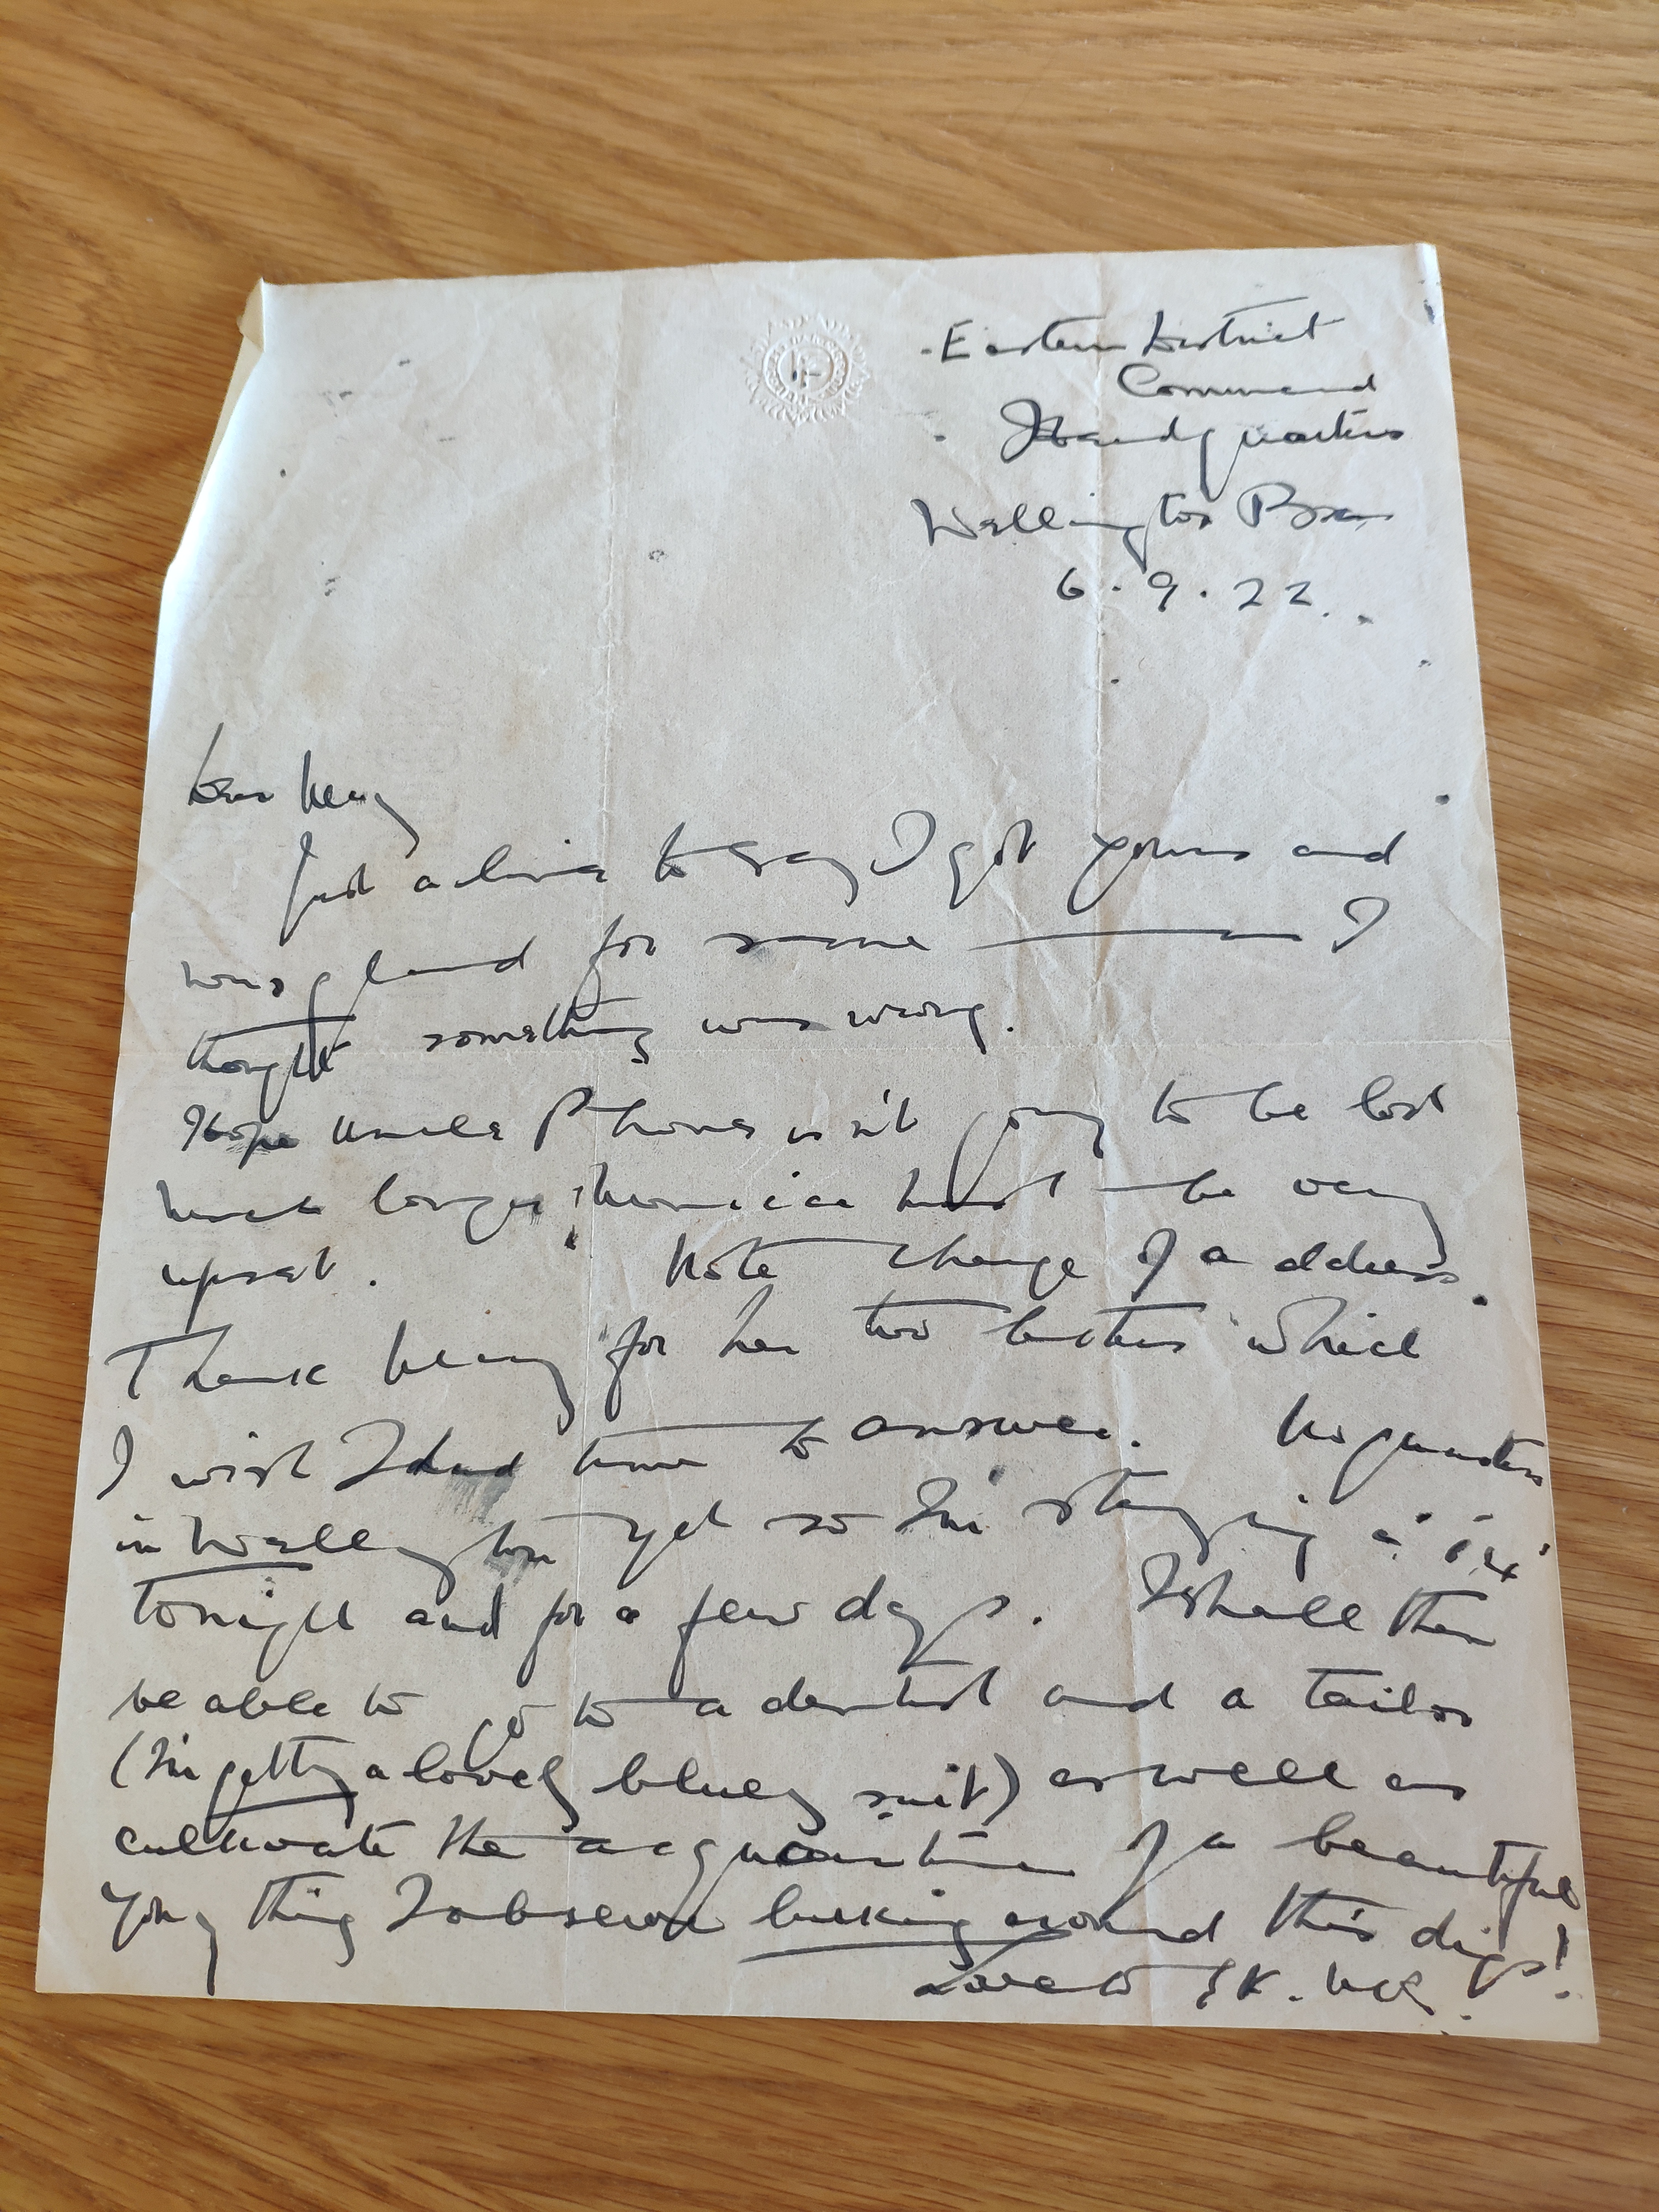 Eastern District
Command
Headquarters
Wellington Bks
6.9.22.
Dear
Just a line to say I got yours and
was glad for some I
thought something was wrong.
Hope Uncle isn't going to be lost
much longer must be very
upset. Note change of address.
Thank for her two letters which
I wish I had time to answer. No quarters
in Wellington yet so I'm staying
tonight and for a few days. I shall then
be able to go to a dentist and a tailor
(I'm getting a lovely bluey suit) as well as
cultivate the acquaintance of a beautiful
young thing I observe lurking around this digs!
Love to